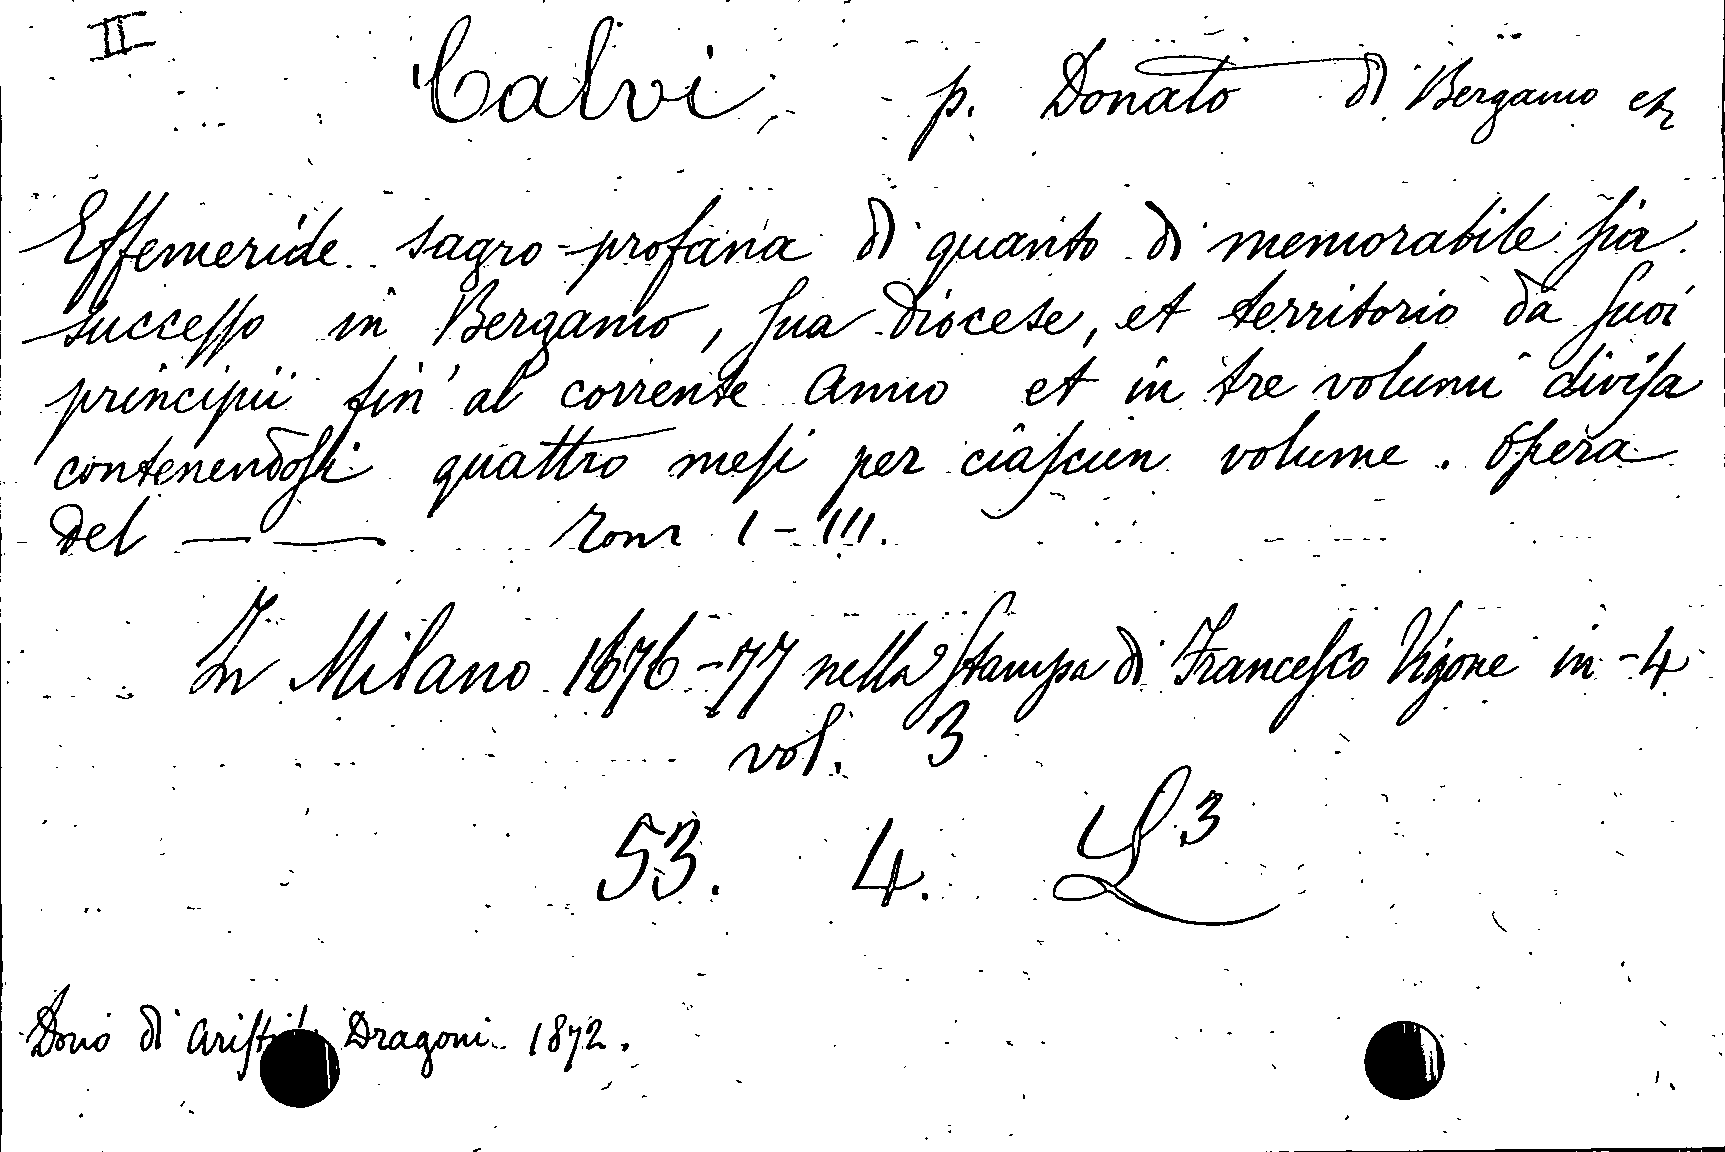 II
Calvi, p. Donato di Bergamo
Effemeride sagro-profana di quanto di memorabile sia
successo in Bergamo, sua diocese, et territorio da suoi
principii fin' al corrente Anno et in tre volumi divisa
contenendosi quattro mesi per ciascun volume. Opera
del — — Tom I-III.
In Milano 1676-77 nella Stampa di Francesco Vigone in-4
vol. 3
53. 4. L3
Dono di Dragoni 1872.